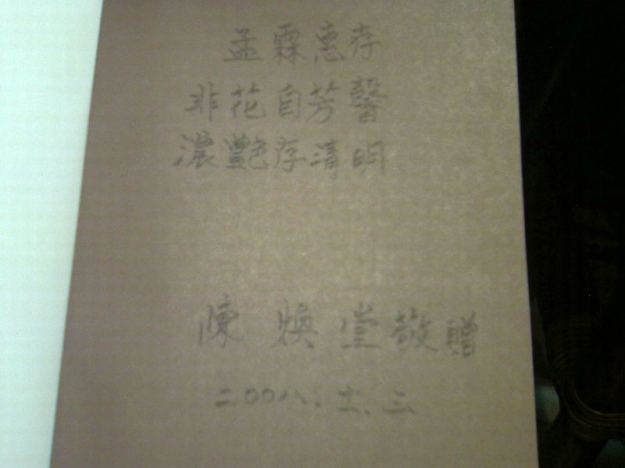 孟霖惠存
非花自芳馨
濃艷存清明
陳煥堂敬贈
二00八、十一、三